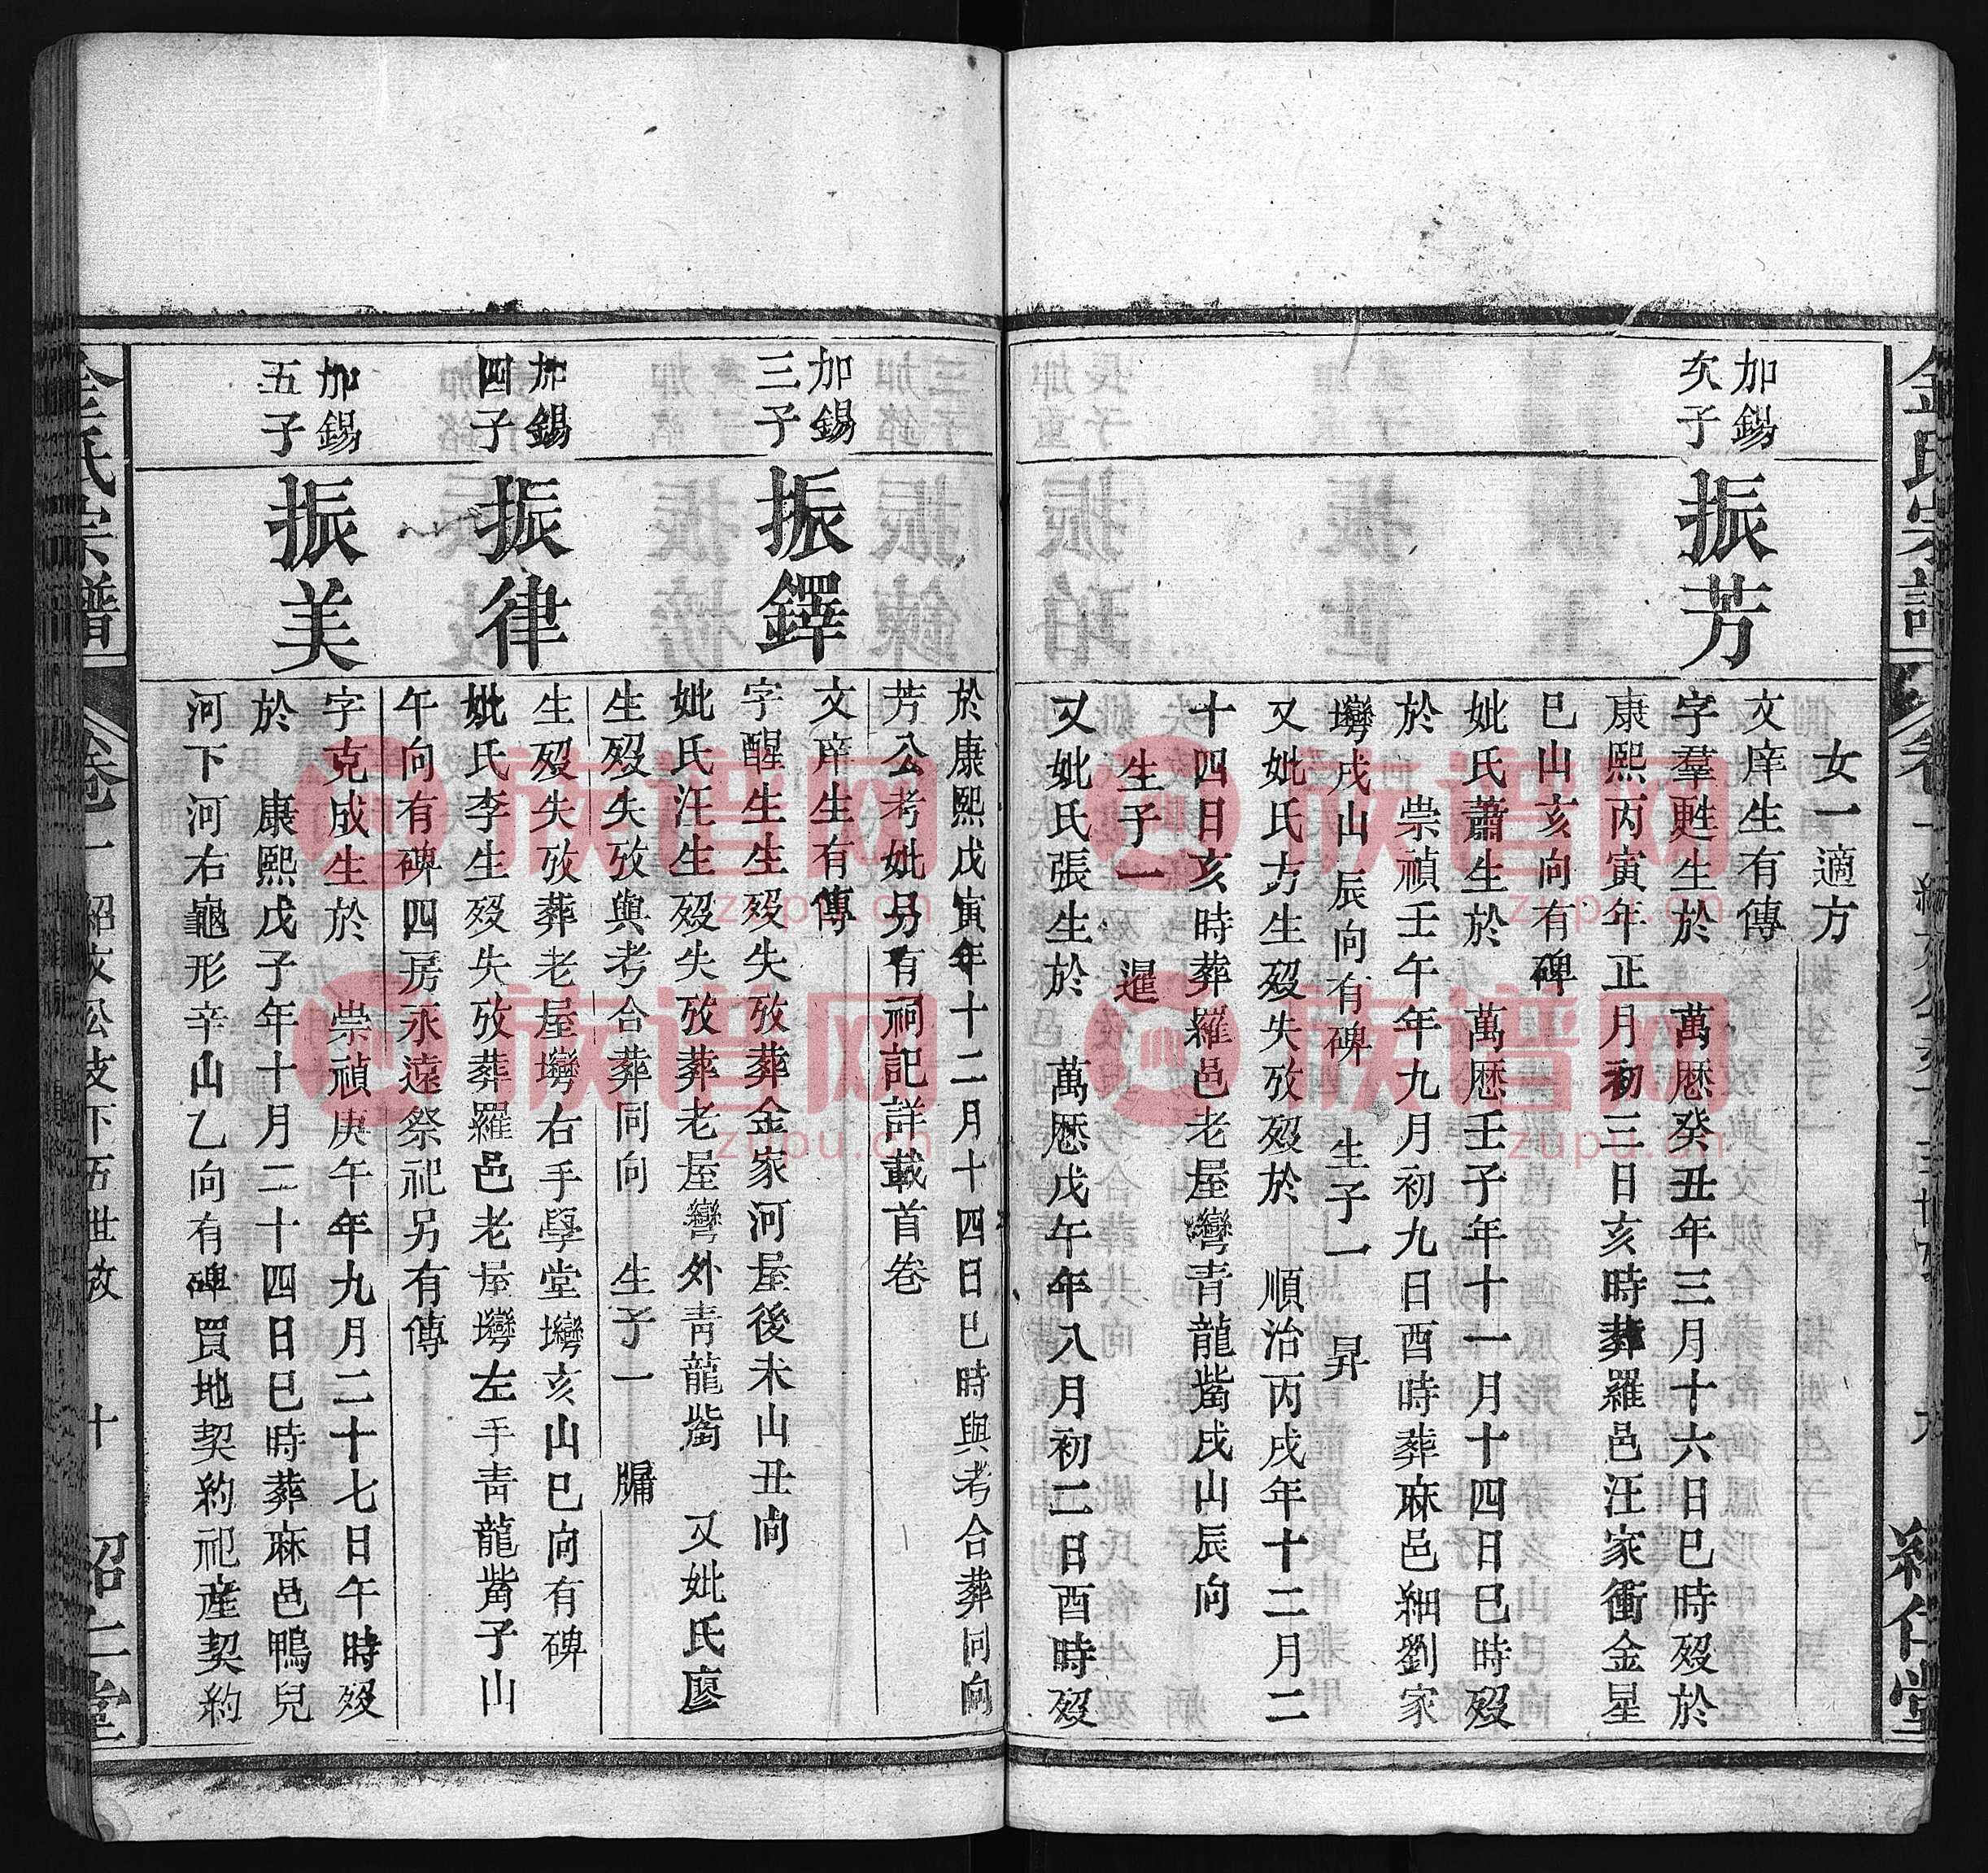 女一適方
加錫
次子
振芳
文庠生有傳
字羣甦生於 萬曆癸丑年三月十六日巳時歿於
康熙丙寅年正月初三日亥時葬羅邑汪家衝金星
巳山亥向有碑
妣氏蕭生於 萬曆壬子年十一月十四日巳時歿
於 崇禎壬午年九月初九日酉時葬麻邑細劉家
塆戌山辰向有碑 生子一 昇
又妣氏方生歿失攷歿於 順治丙戌年十二月二
十四日亥時葬羅邑老屋灣青龍嘴戌山辰向
生子一 暹
又妣氏張生於 萬曆戊午年八月初二日酉時歿
於康熙戊寅年十二月十四日巳時與考合葬同向
芳公考妣另有祠記詳載首卷
加錫
三子
振鐸
文庠生有傳
字醒生生歿失攷葬金家河屋後未山丑向
妣氏汪生歿失攷葬老屋灣外青龍嘴 又妣氏廖
生歿失攷與考合葬同向 生子一 牖
加錫
四子
振律
生歿失攷葬老屋塆右手學堂塆亥山巳向有碑
妣氏李生歿失攷葬羅邑老屋塆左手青龍嘴子山
午向有碑四房永遠祭祀另有傳
加錫
五子
振美
字克成生於 崇禎庚午年九月二十七日午時歿
於 康熙戊子年十月二十四日巳時葬麻邑鴨兒
河下河右龜形辛山乙向有碑買地契約祀產契約
金氏宗譜
卷一
紹文公支下五世攷
十
紹仁堂
族谱网
zupu.cn